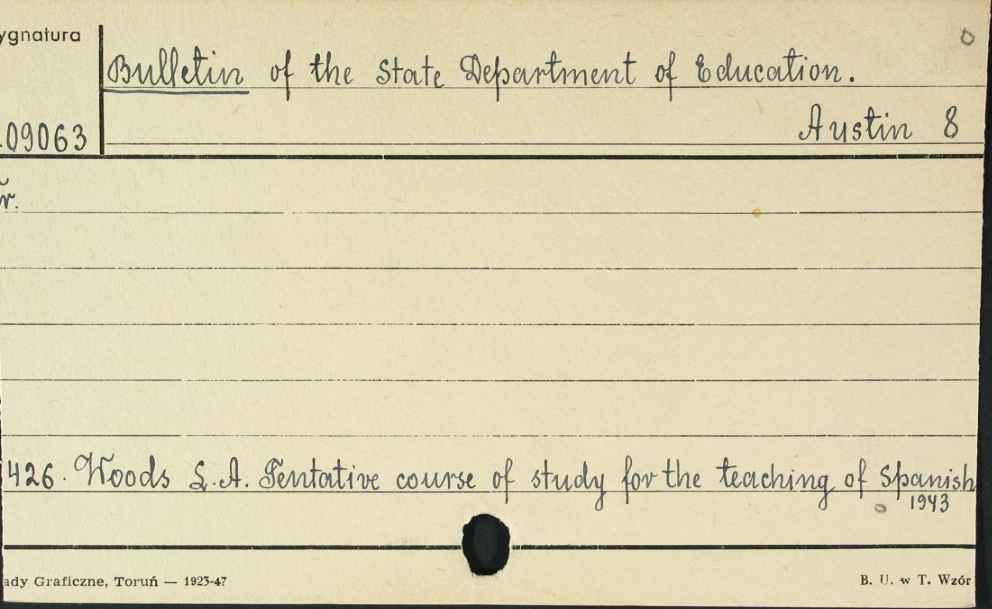 ygnatura
Bulletin of the State Department of Education.
09063
Austin 8
r.
426. Woods L.A. Tentative course of study for the teaching of Spanish
1943
ady Graficzne, Toruń — 1923-47
B. U. w T. Wzór